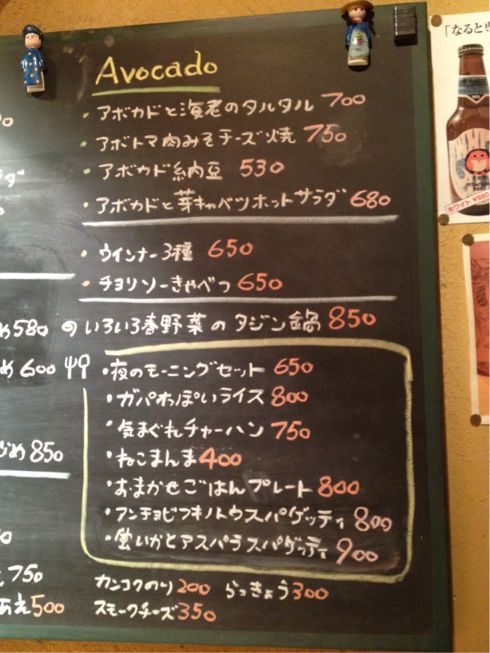 Avocado
・アボカドと海老のタルタル 700
・アボトマ肉みそチーズ焼 750
・アボカド納豆 530
・アボカドと芽キャベツホットサラダ 680
・ウインナー3種 650
・チョリソーきゃべつ 650
め580 のいろいろ春野菜のタジン鍋 850
め600
・夜のモーニングセット 650
・ガパオっぽいライス 800
・気まぐれチャーハン 750
・ねこまんま 400
・おまかせごはんプレート 800
・アンチョビフキノトウスパゲッティ 800
・蛍いかとアスパラスパゲッティ 900
め 850
750
あえ500
カンコクのり 200 らっきょう 300
スモークチーズ 350
「なると
ホワイト